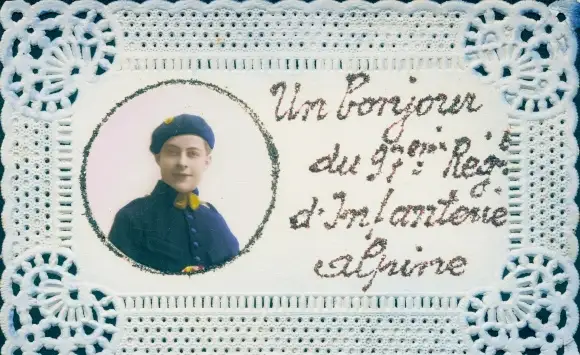 Un bonjour
du 97ème Régt
d'Infanterie
alpine